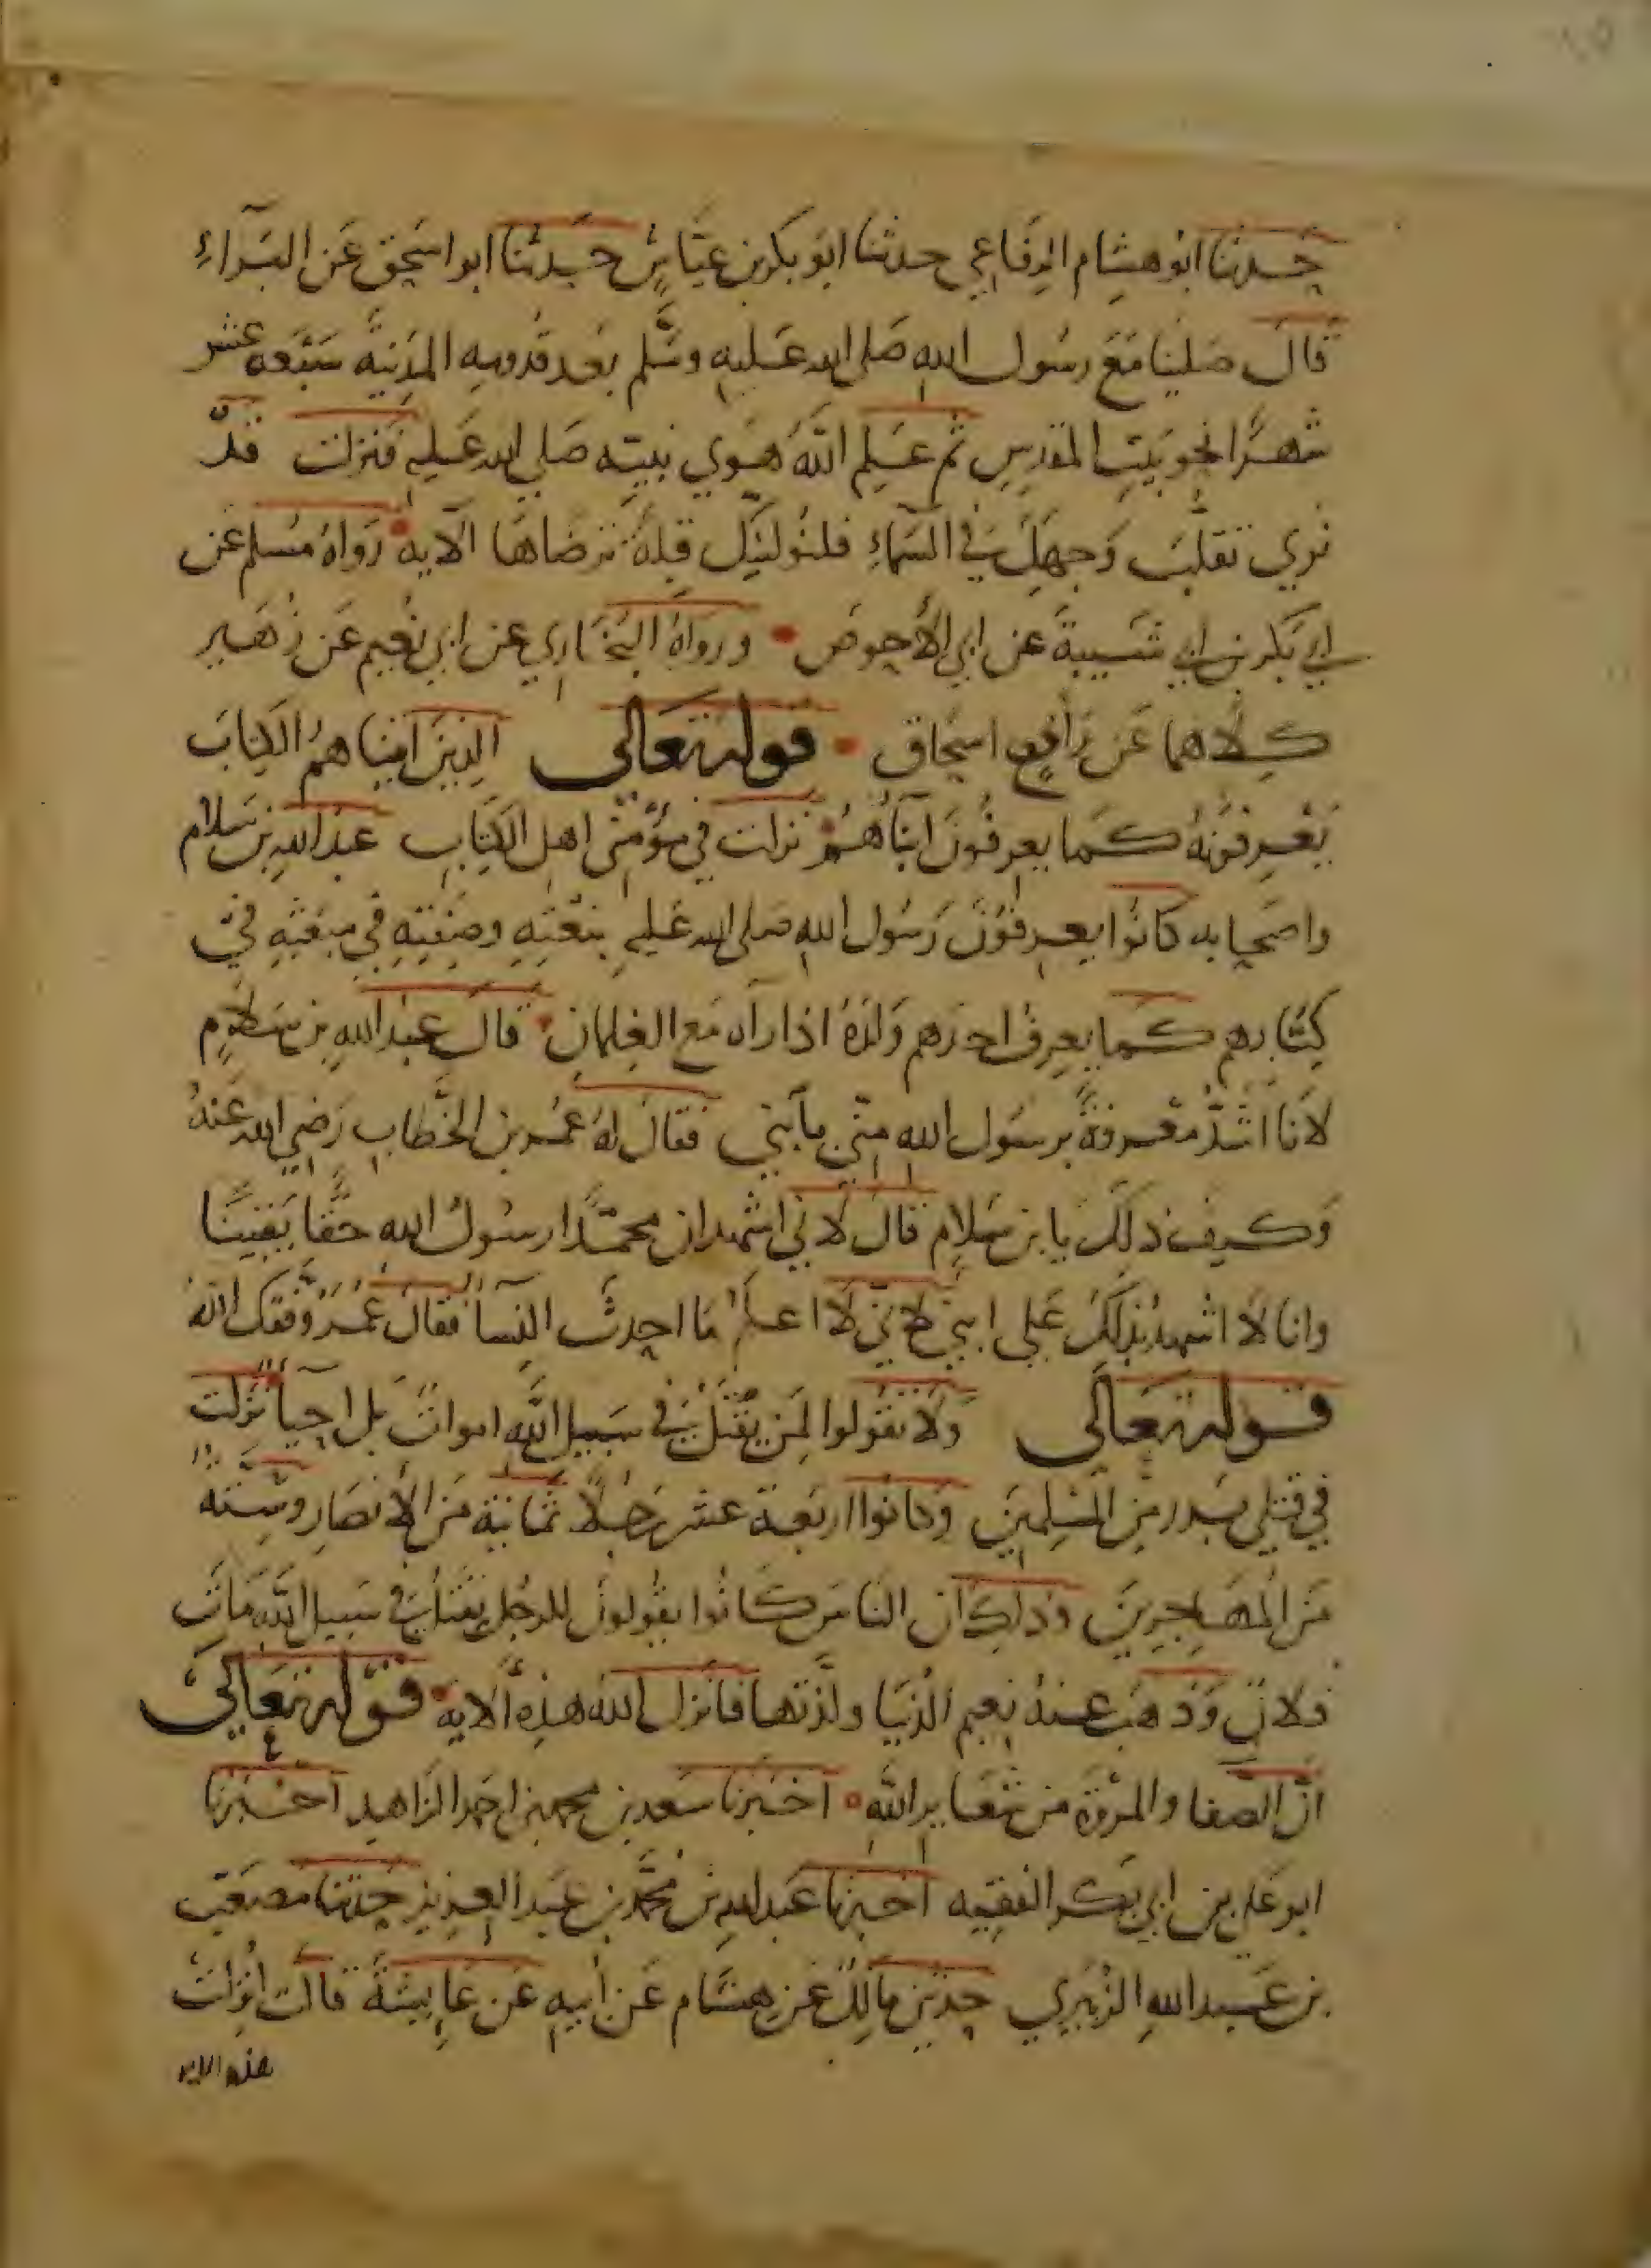 حدثنا ابو هشام الرفاعي حدثنا ابو بكر بن عياش حدثنا ابو اسحق عن البرآء
قال صلينا مع رسول الله صلى الله عليه وسلم بعد قدومه المدينة سبعة عشر
شهرًا نحو بيت المقدس ثم علم الله هوي نبيه صلي الله عليه فنزلت قد
نري تقلب وجهك في السماء فلنولينك قبلة ترضاها الآية رواه مسلم عن
ابي بكر بن ابي شيبة عن ابي الأحوص ورواه البخاري عن ابي نعيم عن زهير
كلاهما عن اسحاق قوله تعالى الذين اتيناهم الكتاب
يعرفونه كما يعرفون ابنآهم نزلت في مؤمني اهل الكتاب عبد الله بن سلام
واصحابه كانوا يعرفون رسول الله صلى الله عليه بنعته وصفته في مبعثه في
كتابهم كما يعرف احدهم ولده اذا رآه مع الغلمان قال عبد الله بن سلام
لأنا اشدّ معرفة برسول الله منّي بآبني فقال له عمر بن الخطاب رضي الله عنه
وكيف ذلك يا بن سلام قال لاني اشهد ان محمدًا رسول الله حقًا يقينًا
وانا لا اشهد بذلك علي ابني لاني لا اعلم ما احدث النسآ فقال عمر وفقك الله
قوله تعالى ولا تقولوا لمن يقتل في سبيل الله اموات بل احيآ نزلت
في قتلي بدر من المسلمين وكانوا اربعة عشر رجلًا ثمانية من الأنصار وستة
من المهاجرين وذلك ان الناس كانوا يقولون للرجل يقتل في سبيل الله مات
فلان وذهب عنه نعيم الدنيا ولذتها فانزل الله هذه الآية قوله تعالى
ان الصفا والمروة من شعاير الله اخبرنا سعد بن محمد بن احمد الزاهد اخبرنا
ابو علي بن ابي بكر الفقيه اخبرنا عبد الله بن محمد بن عبد العزيز حدثنا مصعب
بن عبد الله الزبيري حدثني مالك عن هشام عن أبيه عن عايشة قالت انزلت
هذه الاية